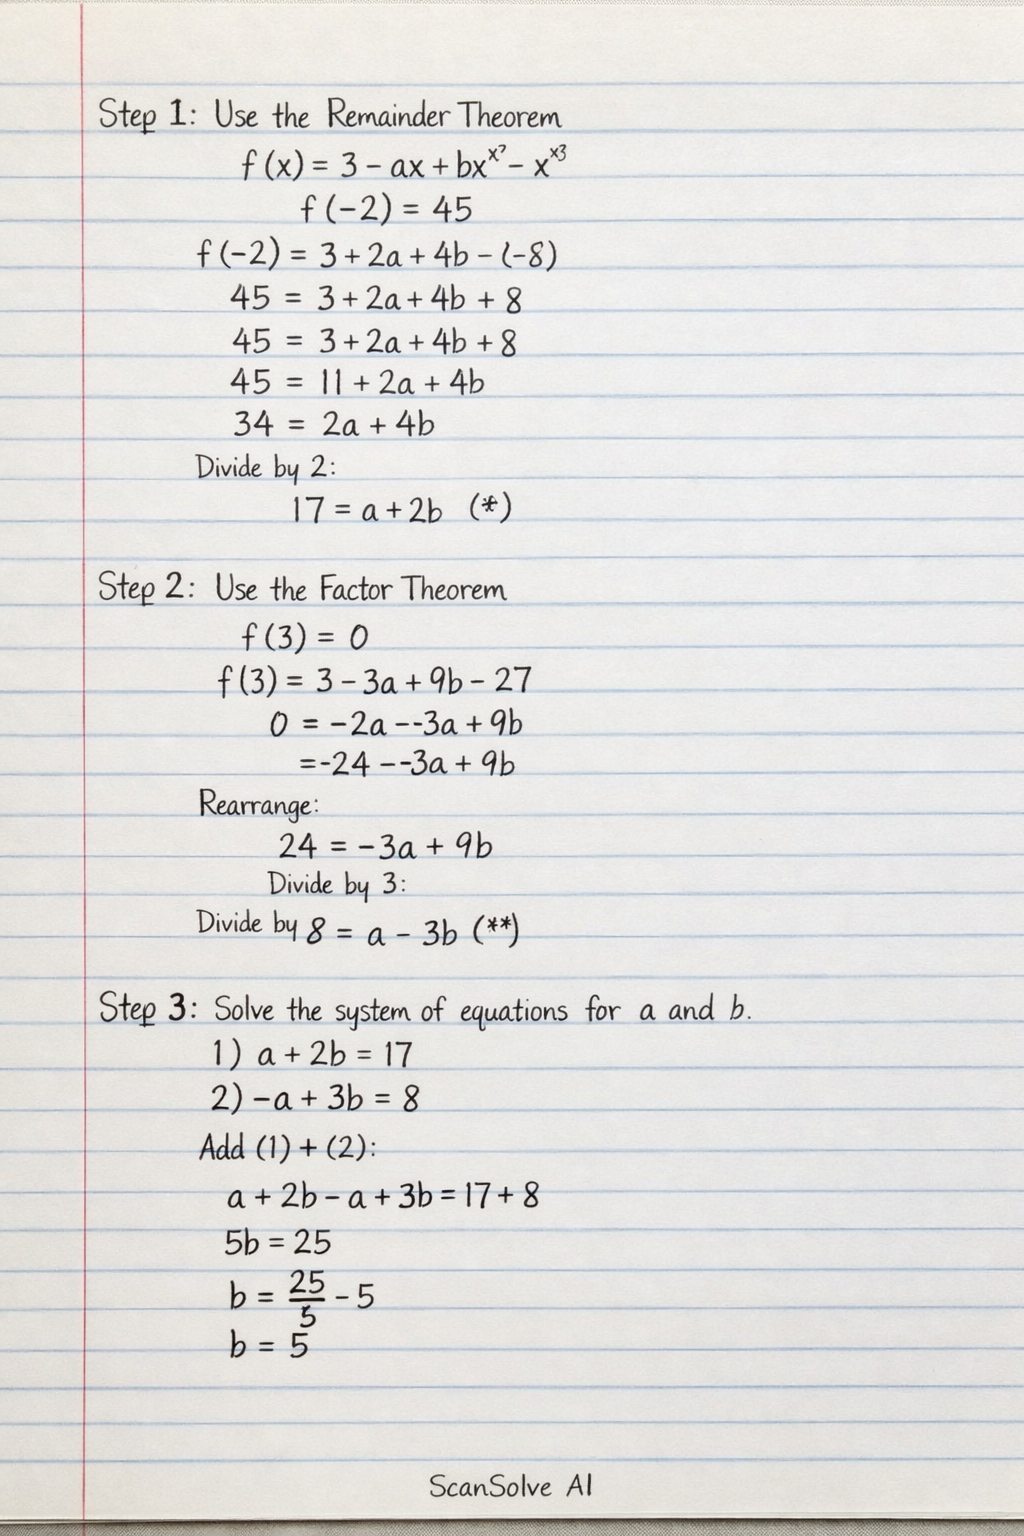 Step 1: Use the Remainder Theorem
f(x) = 3 - ax + bx^x² - x^x3
f(-2) = 45
f(-2) = 3 + 2a + 4b - (-8)
45 = 3 + 2a + 4b + 8
45 = 3 + 2a + 4b + 8
45 = 11 + 2a + 4b
34 = 2a + 4b
Divide by 2:
17 = a + 2b (*)
Step 2: Use the Factor Theorem
f(3) = 0
f(3) = 3 - 3a + 9b - 27
0 = -2a --3a + 9b
=-24 --3a + 9b
Rearrange:
24 = -3a + 9b
Divide by 3:
Divide by 8 = a - 3b (**)
Step 3: Solve the system of equations for a and b.
1) a + 2b = 17
2) -a + 3b = 8
Add (1) + (2):
a + 2b - a + 3b = 17 + 8
5b = 25
b = 25/5 - 5
b = 5
ScanSolve AI